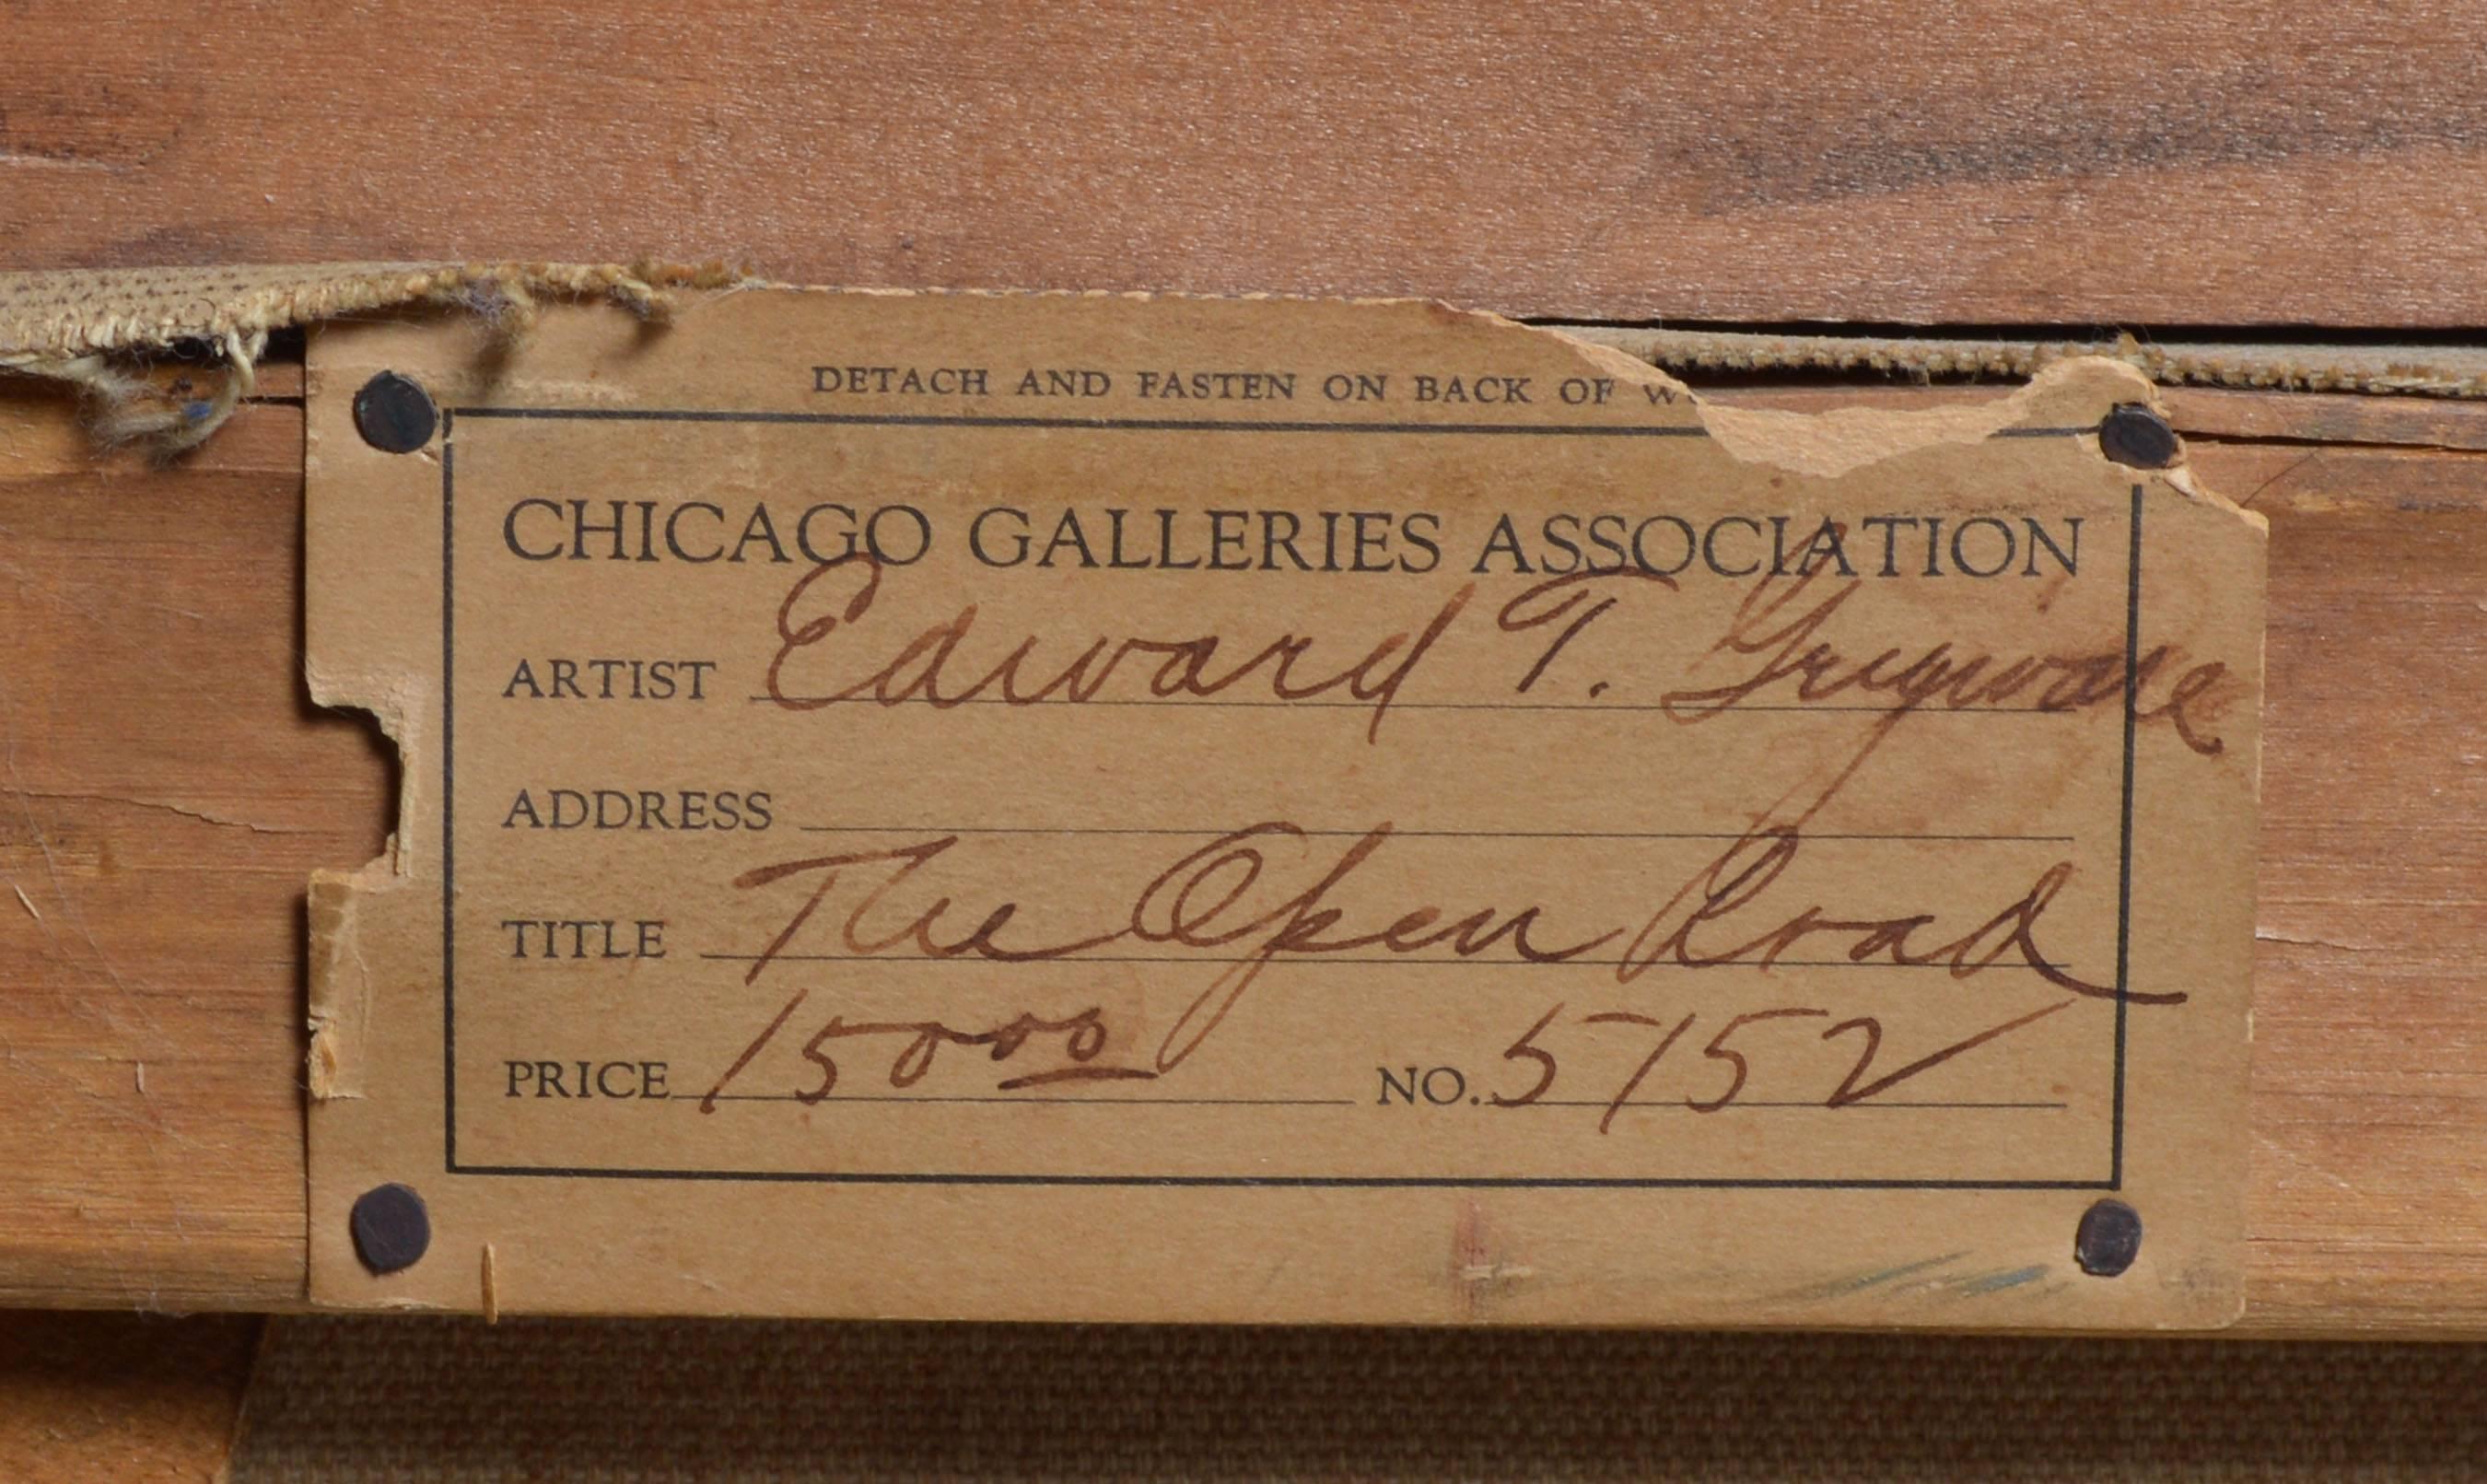 DETACH AND FASTEN ON BACK OF
CHICAGO GALLERIES ASSOCIATION
ARTIST Edward T. Grigware
ADDRESS
TITLE The Open Road
PRICE 150 00 NO. 5152